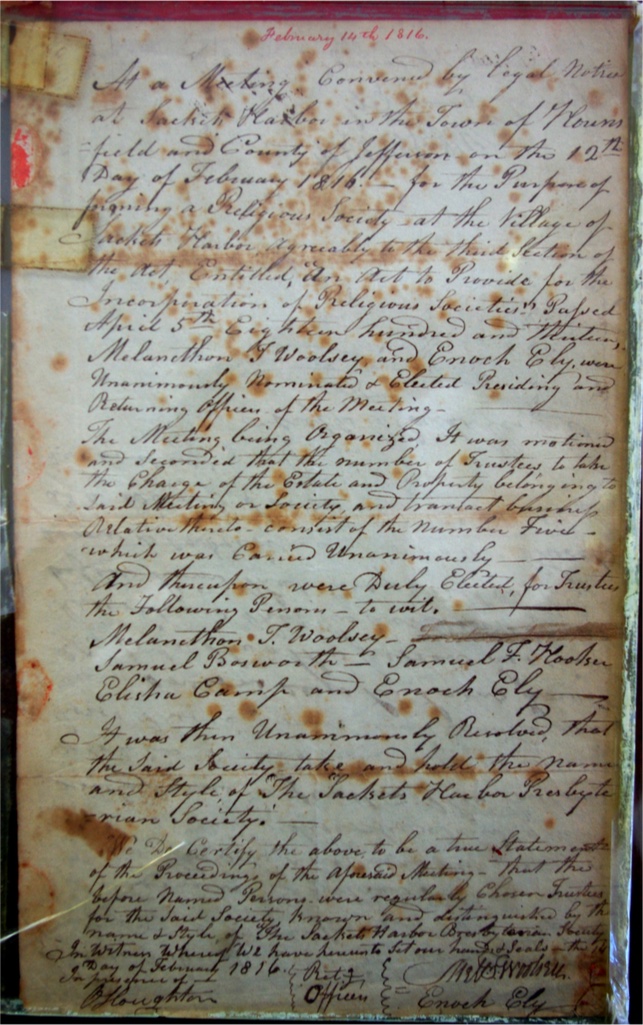 February 14th 1816.
At a Meeting Convened by legal Notice
at Sackets Harbor in the Town of Houns
-field and County of Jefferson on the 12th
Day of February 1816 — for the Purpose of
forming a Religious Society at the Village of
Sackets Harbor agreeably to the third Section of
the Act Entitled, "An Act to Provide for the
Incorporation of Religious Societies" Passed
April 5th Eighteen hundred and thirteen,
Melancthon T Woolsey, and Enoch Ely, were
Unanimously Nominated & Elected Presiding and
Returning Officers of the Meeting —
The Meeting being Organized, It was motioned
and Seconded that the number of Trustees to take
the Charge of the Estate and Property belonging to
said Meeting or Society, and transact business
Relative thereto — consist of the Number Five —
which was Carried Unanimously —
And thereupon were Duly Elected, for Trustees
the Following Persons — to wit.
Melancthon T. Woolsey —
Samuel Bosworth — Samuel F. Hooker
Elisha Camp and Enoch Ely —
It was then Unanimously Resolved, that
the said Society take and hold the name
and Style of "The Sackets Harbor Presbyte
-rian Society." —
We Do Certify the above to be a true Statement
of the Proceedings of the Aforesaid Meeting — that the
before Named Persons were regularly Chosen Trustees
for the Said Society Known and distinguished by the
name & Style, of "The Sackets Harbor Presbyterian Society
In Witness Whereof We have hereunto Set our hands & Seals — the
Day of February 1816.
In presence of
Officers
Enoch Ely